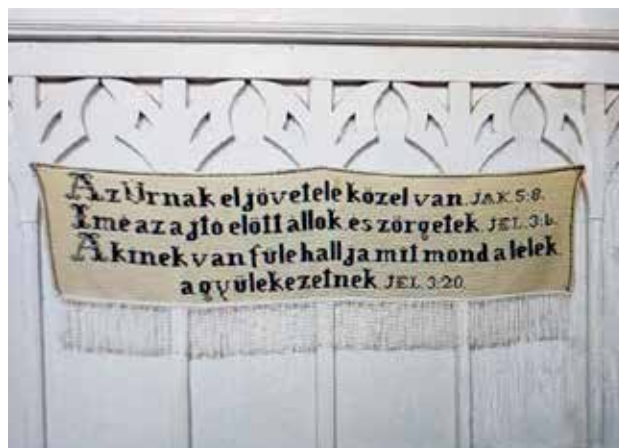 Az Úrnak eljövetele közel van JAK 5:8.
Ime az ajtó előtt állok és zörgetek JEL 3:6.
Akinek van füle hallja mit mond a lélek
a gyülekezetnek JEL 3:20.